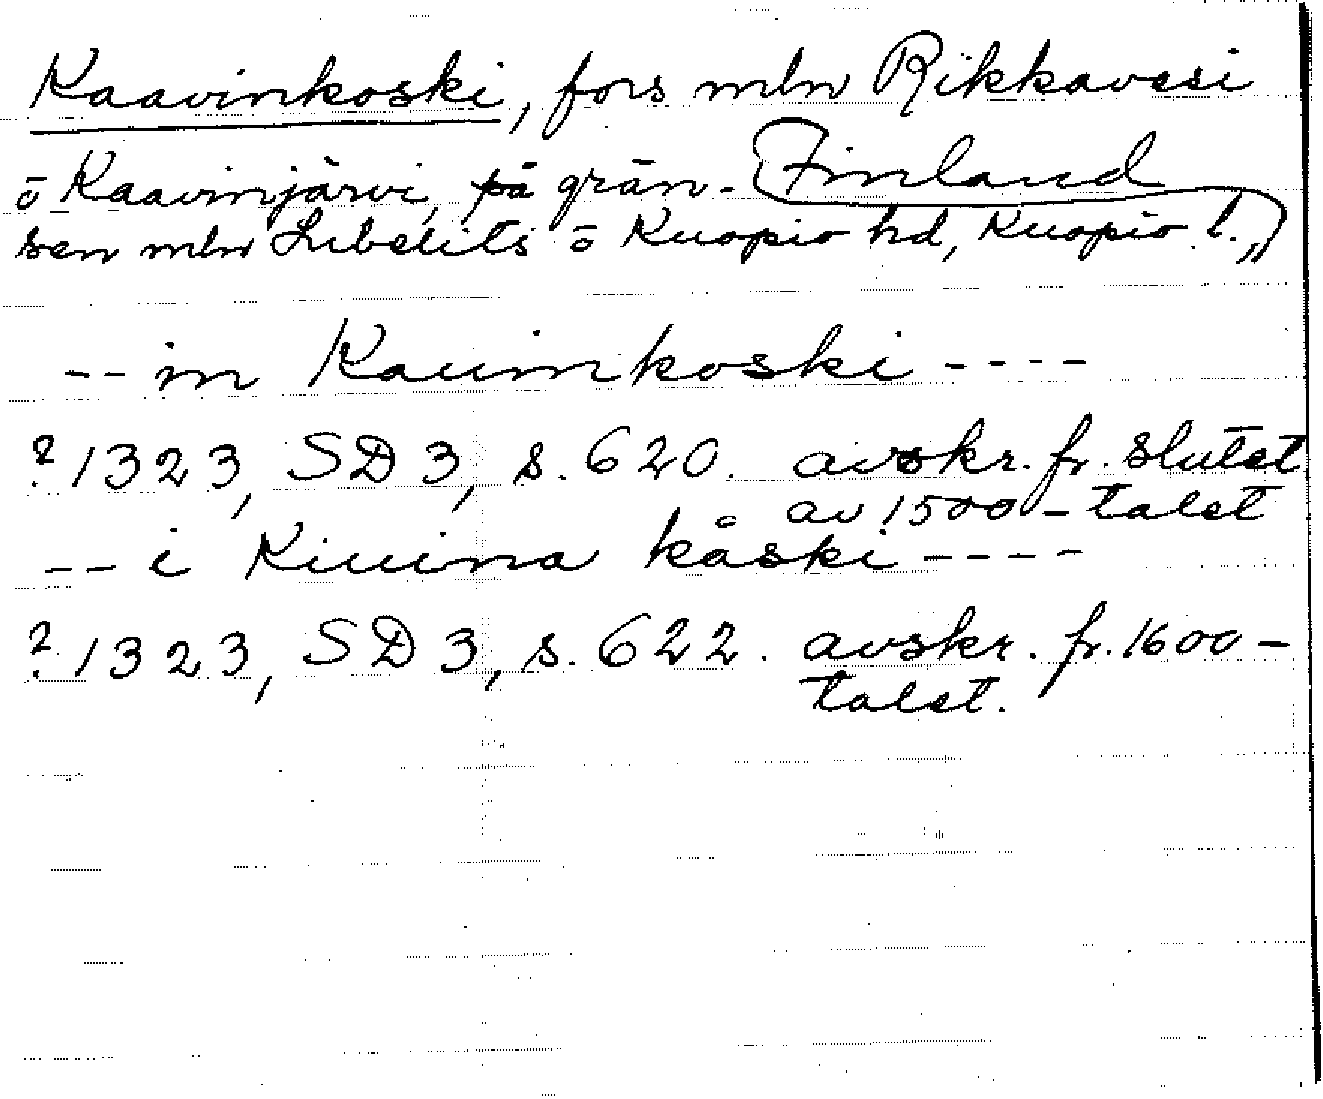 Kaavinkoski, fors mln Rikkavesi
ō Kaavinjärvi, på grän- Finland
sen mln Libelits ō Kuopio hd, Kuopio l.,
-- in Kauinkoski ----
? 1323, SD 3, s. 620. avskr. fr. slutet
av 1500-talet
-- i Kiuina kåski ----
? 1323, SD 3, s. 622. avskr. fr. 1600-
talet.